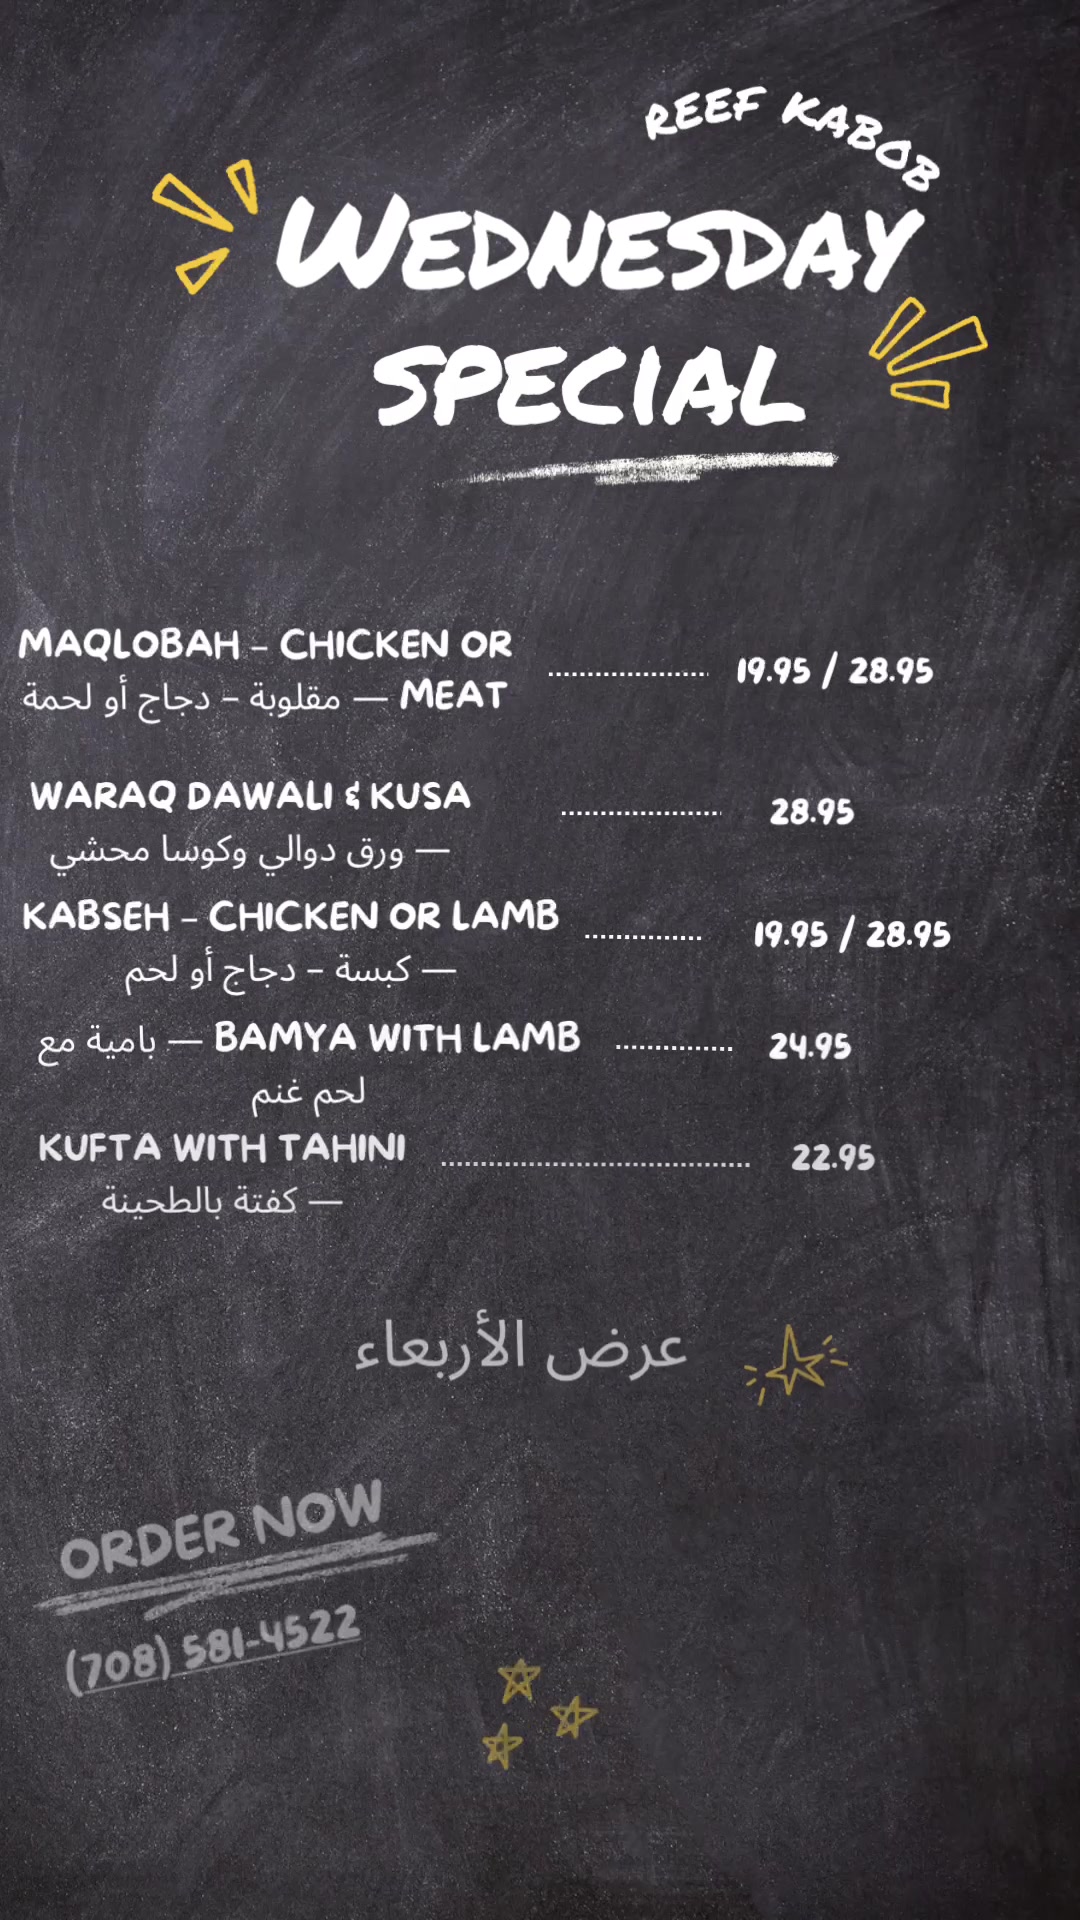 REEF KABOB
WEDNESDAY
SPECIAL
MAQLOBAH – CHICKEN OR
MEAT — مقلوبة – دجاج أو لحمة
19.95 / 28.95
WARAQ DAWALI & KUSA
— ورق دوالي وكوسا محشي
28.95
KABSEH – CHICKEN OR LAMB
— كبسة – دجاج أو لحم
19.95 / 28.95
BAMYA WITH LAMB — بامية مع
لحم غنم
24.95
KUFTA WITH TAHINI
— كفتة بالطحينة
22.95
عرض الأربعاء
ORDER NOW
(708) 581-4522